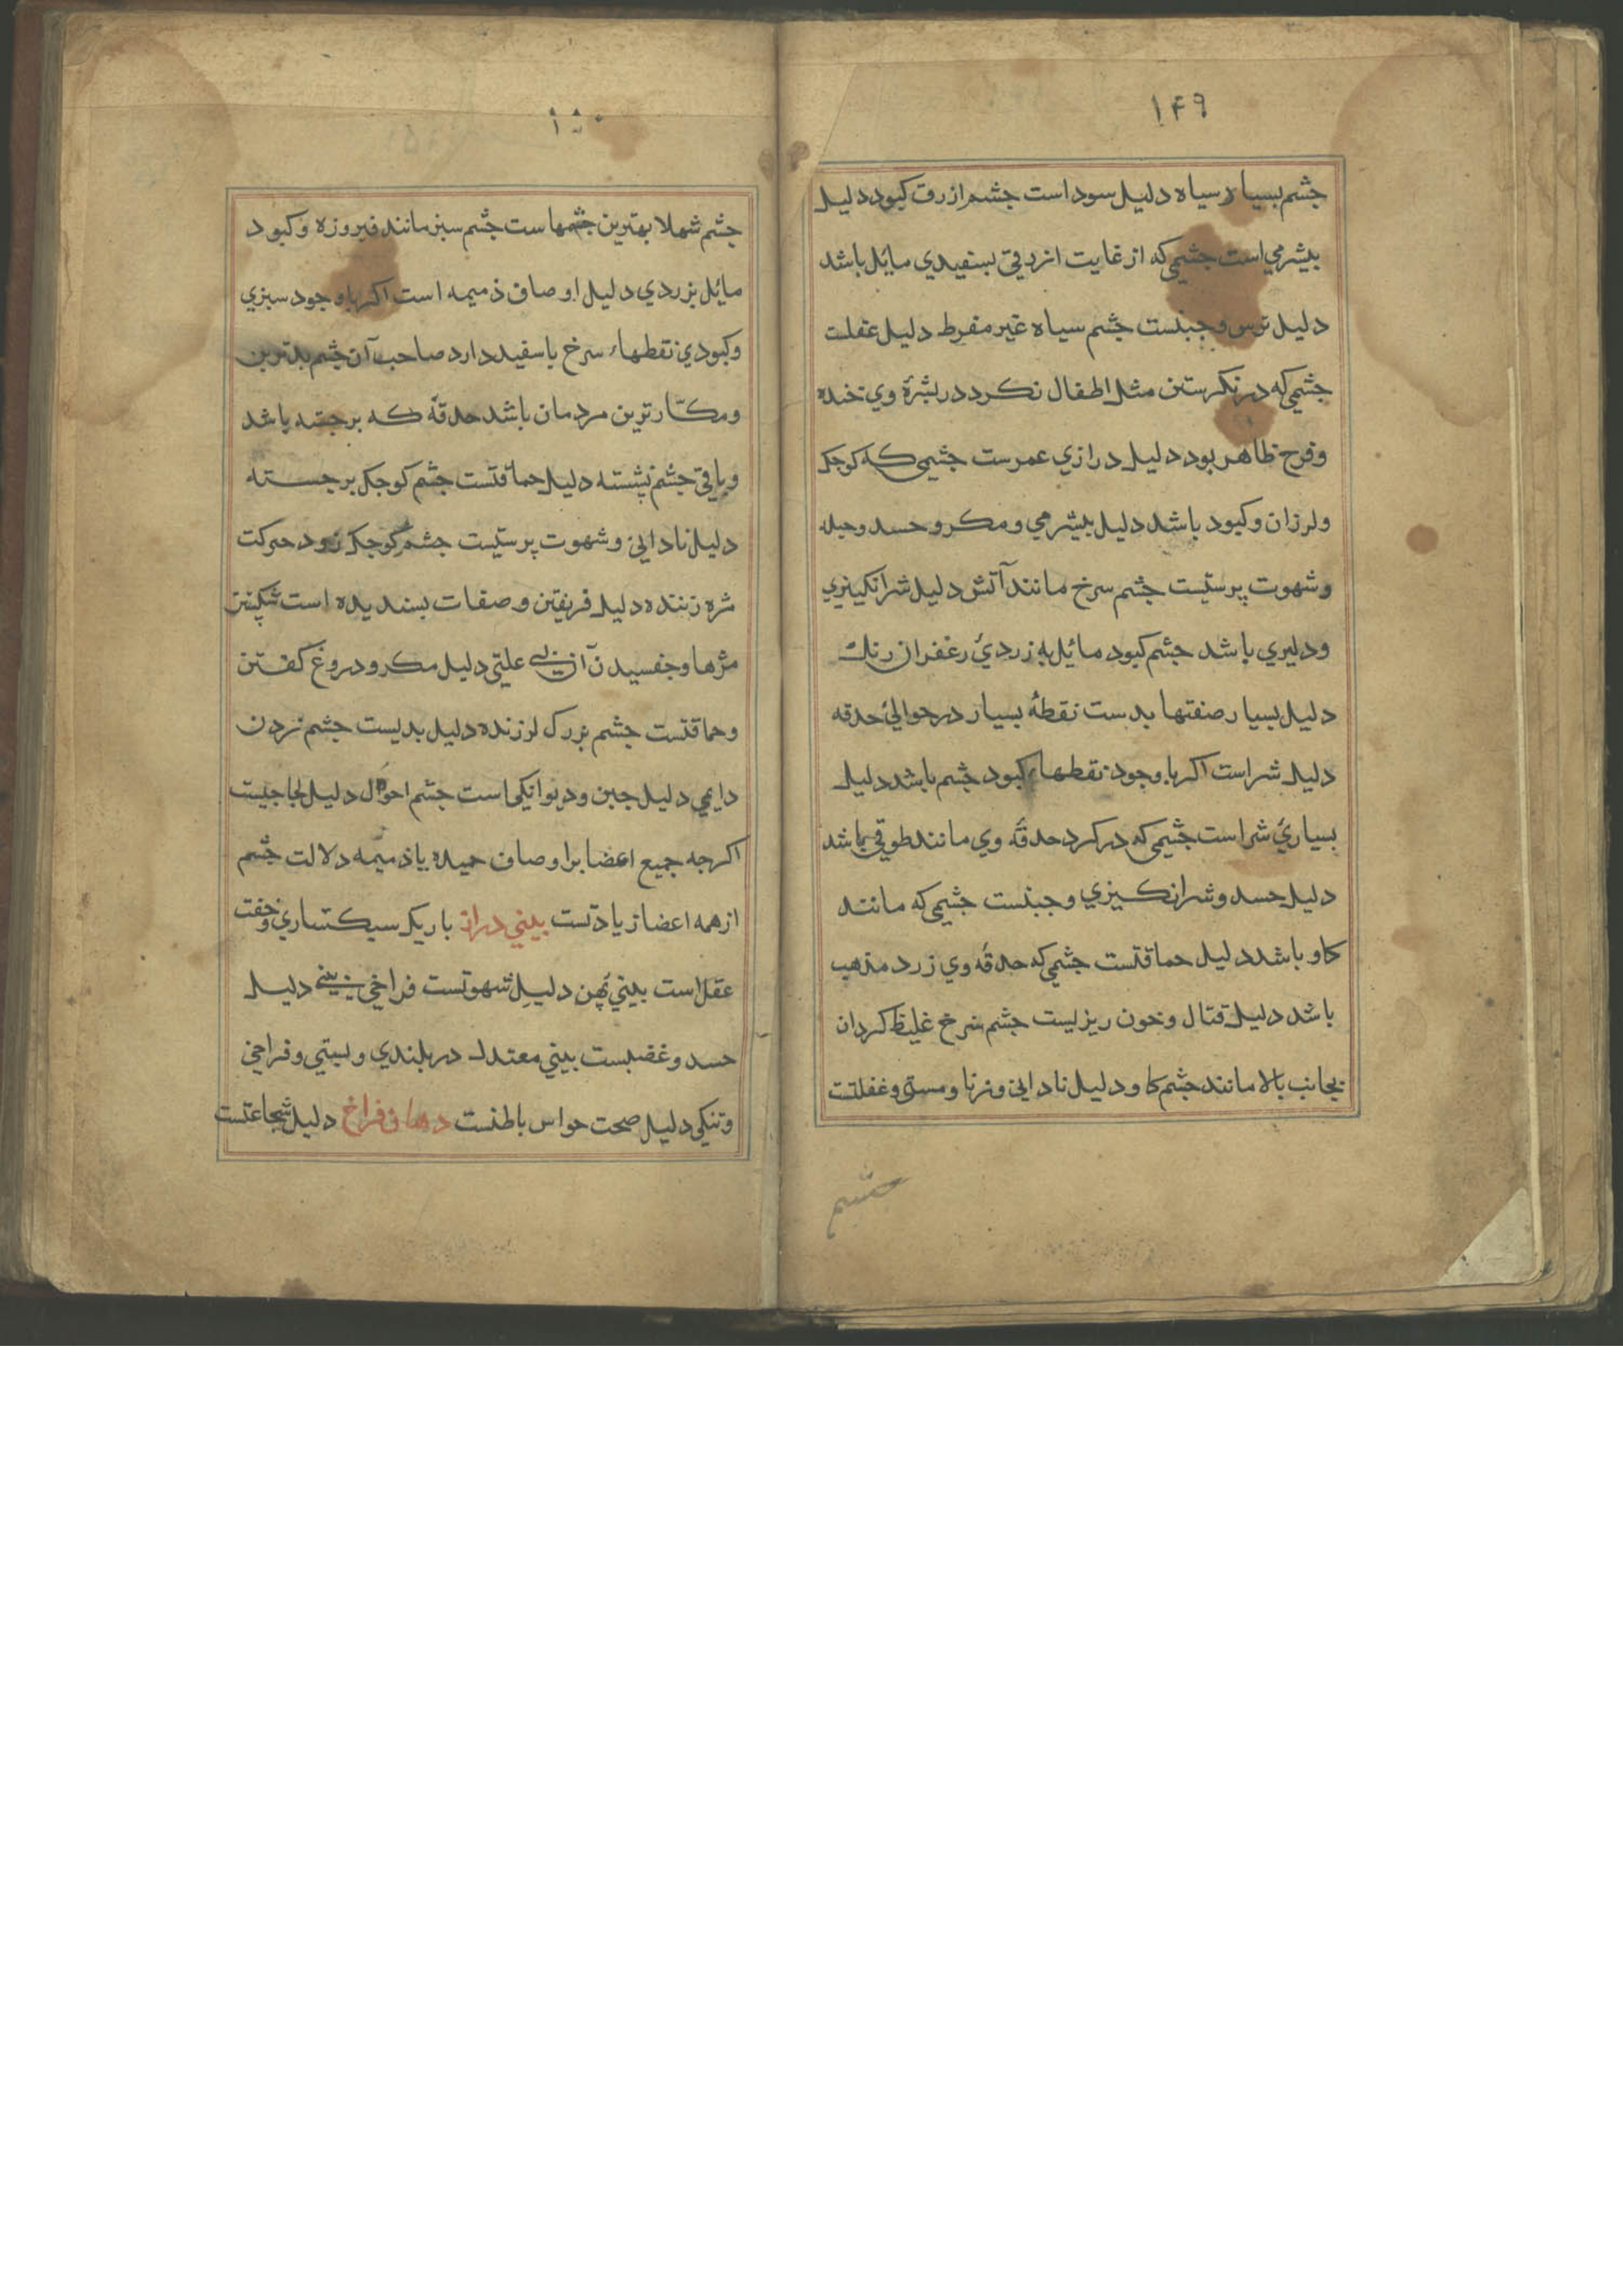 ۱۴۹
جشم بسیار سیاه دلیل سوداست جشم ازرق کبود دلیل
بیشرمی است جشمی که از غایت ازرقی بسفیدی مایل باشد
دلیل ترس و جبنست جشم سیاه غیر مفرط دلیل عقلست
جشمی که در نکرستن مثل اطفال نکرد در بشرهٔ وی خنده
و فرح ظاهر بود دلیل درازی عمرست جشمی که کوجک
و لرزان و کبود باشد دلیل بیشرمی و مکر و حسد و حیله
و شهوت پرستیست جشم سرخ مانند آتش دلیل شرانکیزی
و دلیری باشد جشم کبود مائل به زردیٔ زعفران رنک
دلیل بسیار صفتها بدست نقطهٔ بسیار در حوالیٔ حدقه
دلیل شراست اکر با وجود نقطهاء کبود جشم باشد دلیل
بسیاریٔ شراست جشمی که در کرد حدقهٔ وی مانند طوقی باشد
دلیل حسد و شرانکیزی و جبنست جشمی که مانند
کاو باشد دلیل حماقتست جشمی که حدقهٔ وی زرد مذهب
باشد دلیل قتال و خون ریزیست جشم سرخ غلیظ کردان
بجانب بالا مانند جشم کاو دلیل نادانی و زنا و مستی و غفلتست
جشم
۱۵۰
جشم شهلا بهترین جشمهاست جشم سبز مانند فیروزه و کبود
مائل بزردی دلیل اوصاف ذمیمه است اکر با وجود سبزی
و کبودی نقطهاء سرخ یا سفید دارد صاحب آن جشم بدترین
و مکّارترین مردمان باشد حدقهٔ که برجسته باشد
و باقی جشم نشسته دلیل حماقتست جشم کوجک برجسته
دلیل نادانی و شهوت پرستیست جشم کوجک زود حرکت
مژه زننده دلیل فریفتن و صفات بسندیده است شکستن
مژها و جفسیدن آن بی علتی دلیل مکر و دروغ کفتن
و حماقتست جشم بزرک لرزنده دلیل بدیست جشم زدن
دایمی دلیل جبن و دیوانکی است جشم احول دلیل لجاجیست
اکرجه جمیع اعضا بر اوصاف حمیده یا ذمیمه دلالت جشم
از همه اعضا زیادتست بینی دراز باریک سبکساری و خفت
عقل است بینیٔ پهن دلیل شهوتست فراخی بینی دلیل
حسد و غضبست بینی معتدل در بلندی و پستی و فراخی
و تنکی دلیل صحت حواس باطنست دهان فراخ دلیل شجاعتست